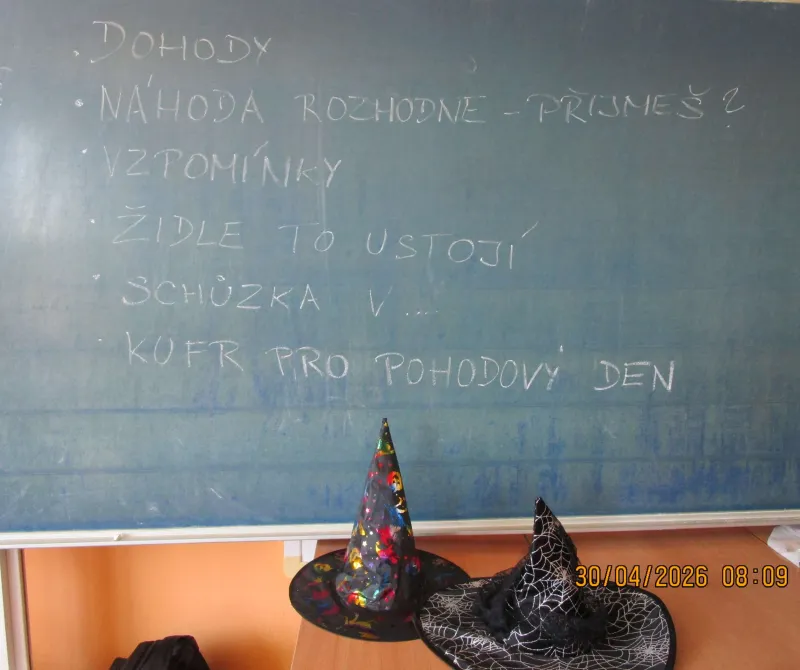 • DOHODY
• NÁHODA ROZHODNE – PŘIJMEŠ?
• VZPOMÍNKY
• ŽIDLE TO USTOJÍ
• SCHŮZKA V ....
• KUFR PRO POHODOVÝ DEN
30/04/2026 08:09